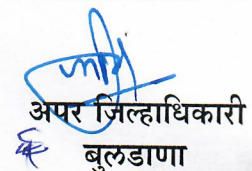 अपर जिल्हाधिकारी
बुलडाणा